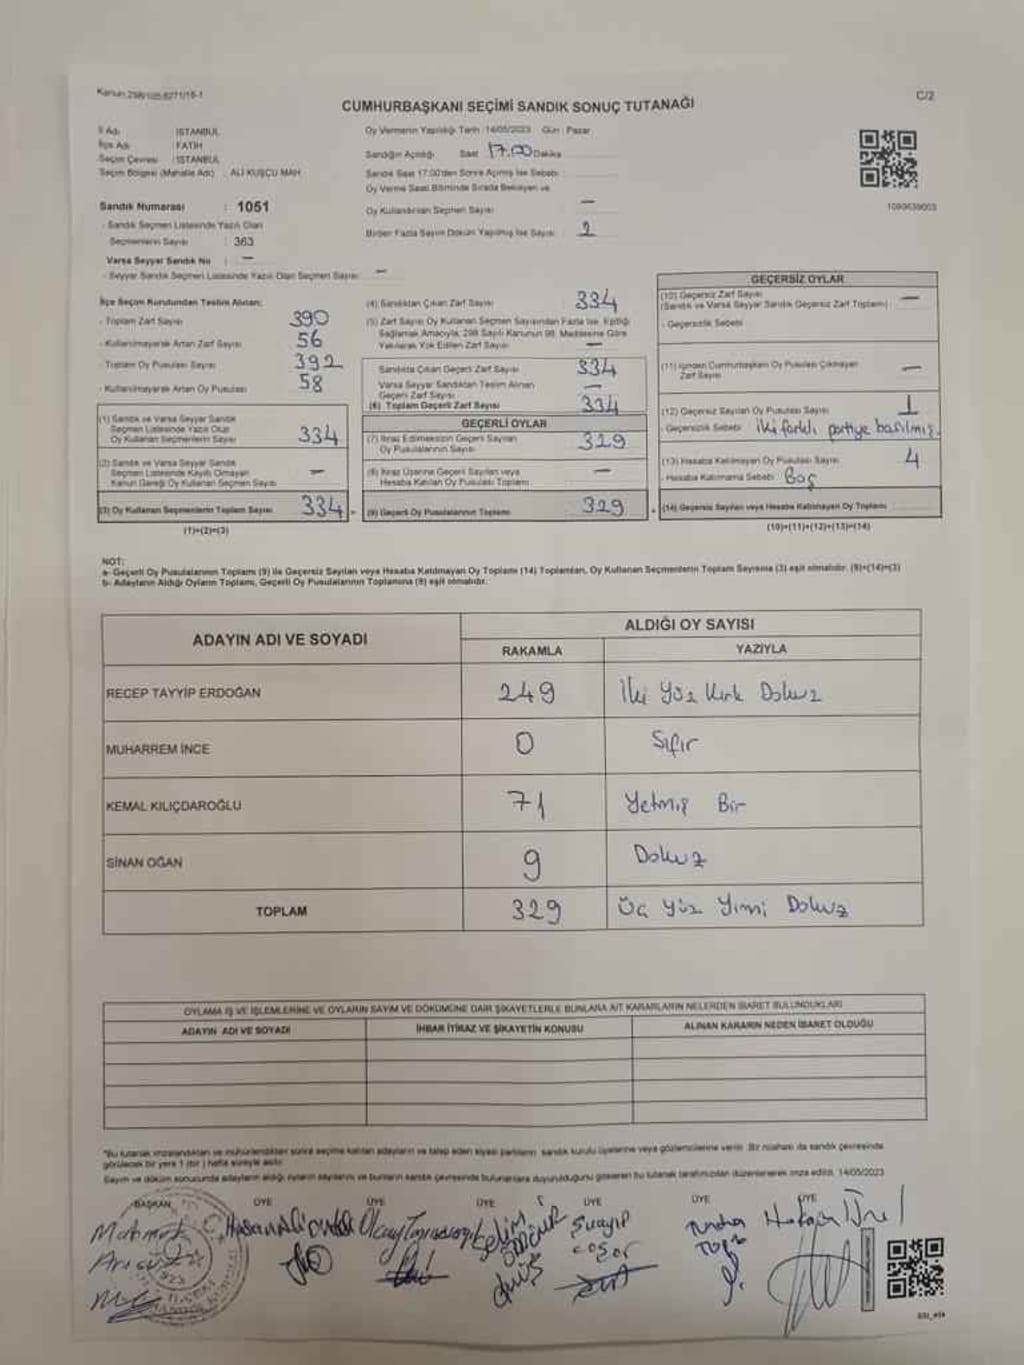 CUMHURBAŞKANI SEÇİMİ SANDIK SONUÇ TUTANAĞI
C/2
İl Adı : İSTANBUL
İlçe Adı : FATİH
Seçim Çevresi : İSTANBUL
Seçim Bölgesi (Mahalle Adı) : ALİ KUŞÇU MAH.
Sandık Numarası : 1051
- Sandık Seçmen Listesinde Yazılı Olan
Seçmenlerin Sayısı : 363
Varsa Seyyar Sandık No : —
- Seyyar Sandık Seçmen Listesinde Yazılı Olan Seçmen Sayısı —
Oy Vermenin Yapıldığı Tarih :14/05/2023 Gün : Pazar
Sandığın Açıldığı Saat 17.00 Dakika
Sandık Saat 17.00'den Sonra Açılmış İse Sebebi
Oy Verme Saati Bitiminde Sırada Bekleyen ve
Oy Kullandırılan Seçmen Sayısı —
Birden Fazla Sayım Döküm Yapılmış İse Sayısı 2
İlçe Seçim Kurulundan Teslim Alınan;
- Toplam Zarf Sayısı 390
- Kullanılmayarak Artan Zarf Sayısı 56
- Toplam Oy Pusulası Sayısı 392
- Kullanılmayarak Artan Oy Pusulası 58
(1) Sandık ve Varsa Seyyar Sandık
Seçmen Listesinde Yazılı Olup
Oy Kullanan Seçmenlerin Sayısı 334
(2) Sandık ve Varsa Seyyar Sandık
Seçmen Listesinde Kayıtlı Olmayan
Kanun Gereği Oy Kullanan Seçmen Sayısı —
(3) Oy Kullanan Seçmenlerin Toplam Sayısı 334
(1)+(2)=(3)
(4) Sandıktan Çıkan Zarf Sayısı 334
(5) Zarf Sayısı Oy Kullanan Seçmen Sayısından Fazla İse, Eşitliği
Sağlamak Amacıyla, 298 Sayılı Kanunun 98. Maddesine Göre
Yakılarak Yok Edilen Zarf Sayısı —
Sandıkta Çıkan Geçerli Zarf Sayısı 334
Varsa Seyyar Sandıktan Teslim Alınan
Geçerli Zarf Sayısı —
(6) Toplam Geçerli Zarf Sayısı 334
GEÇERLİ OYLAR
(7) İtiraz Edilmeksizin Geçerli Sayılan
Oy Pusulalarının Sayısı 329
(8) İtiraz Üzerine Geçerli Sayılan veya
Hesaba Katılan Oy Pusulası Toplamı —
(9) Geçerli Oy Pusulalarının Toplamı 329
GEÇERSİZ OYLAR
(10) Geçersiz Zarf Sayısı —
(Sandık ve Varsa Seyyar Sandık Geçersiz Zarf Toplamı)
- Geçersizlik Sebebi
(11) İçinden Cumhurbaşkanı Oy Pusulası Çıkmayan
Zarf Sayısı —
(12) Geçersiz Sayılan Oy Pusulası Sayısı 1
- Geçersizlik Sebebi iki farklı partiye basılmış.
(13) Hesaba Katılmayan Oy Pusulası Sayısı 4
- Hesaba Katılmama Sebebi Boş
(14) Geçersiz Sayılan veya Hesaba Katılmayan Oy Toplamı
(10)+(11)+(12)+(13)=(14)
NOT:
a- Geçerli Oy Pusulalarının Toplamı (9) ile Geçersiz Sayılan veya Hesaba Katılmayan Oy Toplamı (14) Toplamları, Oy Kullanan Seçmenlerin Toplam Sayısına (3) eşit olmalıdır. (9)+(14)=(3)
b- Adayların Aldığı Oyların Toplamı, Geçerli Oy Pusulalarının Toplamına (9) eşit olmalıdır.
ADAYIN ADI VE SOYADI
ALDIĞI OY SAYISI
RAKAMLA YAZIYLA
RECEP TAYYİP ERDOĞAN 249 İki Yüz Kırk Dokuz
MUHARREM İNCE 0 Sıfır
KEMAL KILIÇDAROĞLU 71 Yetmiş Bir
SİNAN OĞAN 9 Dokuz
TOPLAM 329 Üç Yüz Yirmi Dokuz
OYLAMA İŞ VE İŞLEMLERİNE VE OYLARIN SAYIM VE DÖKÜMÜNE DAİR ŞİKAYETLERLE BUNLARA AİT KARARLARIN NELERDEN İBARET BULUNDUKLARI
ADAYIN ADI VE SOYADI İHBAR İTİRAZ VE ŞİKAYETİN KONUSU ALINAN KARARIN NEDEN İBARET OLDUĞU
*Bu tutanak imzalandıktan ve mühürlendikten sonra seçime katılan adayların ve talep eden siyasi partilerin sandık kurulu üyelerine veya gözlemcilerine verilir. Bir nüshası da sandık çevresinde
görülecek bir yere 1 (bir) hafta süreyle asılır.
Sayım ve döküm sonucunda adayların aldığı oyların sayılarını ve bunların sandık çevresinde bulunanlara duyurulduğunu gösteren bu tutanak tarafımızdan düzenlenerek imza edildi. 14/05/2023
BAŞKAN ÜYE ÜYE ÜYE ÜYE ÜYE ÜYE